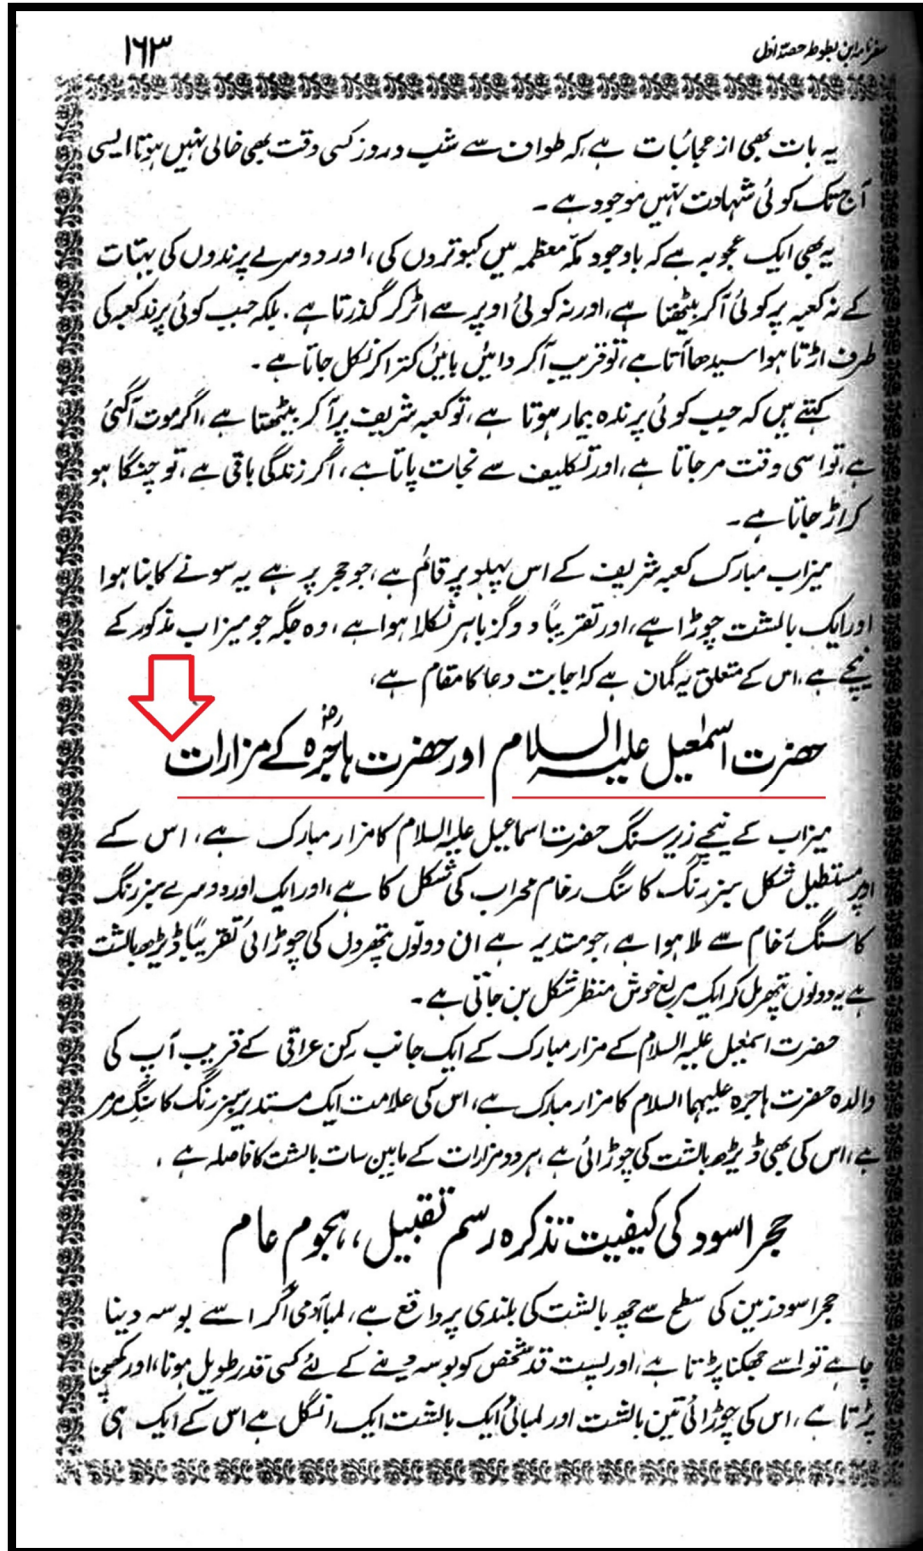 سفرنامہ ابن بطوطہ حصّہ اوّل
۱۶۳
یہ بات بھی از عجائبات ہے کہ طواف سے شب و روز کسی وقت بھی خالی نہیں ہوتا ایسی
آج تک کوئی شہادت نہیں موجود ہے ۔
یہ بھی ایک عجوبہ ہے کہ باوجود مکّہ معظمہ میں کبوتروں کی ، اور دوسرے پرندوں کی بہتات
کے نہ کعبہ پر کوئی آکر بیٹھتا ہے ، اور نہ کوئی اوپر سے اڑ کر گذرتا ہے ۔ بلکہ جب کوئی پرند کعبہ کی
طرف اڑتا ہوا سیدھا آتا ہے ، تو قریب آکر دائیں بائیں کترا کر نکل جاتا ہے ۔
کہتے ہیں کہ جب کوئی پرندہ بیمار ہوتا ہے ، تو کعبہ شریف پر آکر بیٹھتا ہے ، اگر موت آگئی
ہے ، تو اسی وقت مرجاتا ہے ، اور تکلیف سے نجات پاتا ہے ، اگر زندگی باقی ہے ، تو چنگا ہو
کر اڑ جاتا ہے ۔
میزاب مبارک کعبہ شریف کے اس پہلو پر قائم ہے ، جو حجر پر ہے یہ سونے کا بنا ہوا
اور ایک بالشت چوڑا ہے ، اور تقریباً دو گز باہر نکلا ہوا ہے ، وہ جگہ جو میزاب مذکور کے
نیچے ہے ، اس کے متعلق یہ گمان ہے کہ اجابت دعا کا مقام ہے ،
حضرت اسمٰعیل علیہ السلام اور حضرت ہاجرہؓ کے مزارات
میزاب کے نیچے زیر سنگ حضرت اسماعیل علیہ السلام کا مزار مبارک ہے ، اس کے
اوپر مستطیل شکل سبز رنگ کا سنگ رخام محراب کی شکل کا ہے ، اور ایک اور دوسرے سبز رنگ
کا سنگ رخام سے ملا ہوا ہے ، جو مستدیر ہے ان دونوں پتھروں کی چوڑائی تقریباً ڈیڑھ بالشت
ہے یہ دونوں پتھر مل کر ایک مربع خوش منظر شکل بن جاتی ہے ۔
حضرت اسمٰعیل علیہ السلام کے مزار مبارک کے ایک جانب رکن عراقی کے قریب آپ کی
والدہ حضرت ہاجرہ علیہا السلام کا مزار مبارک ہے ، اس کی علامت ایک مستدیر سبز رنگ کا سنگِ مرمر
ہے ، اس کی بھی ڈیڑھ بالشت کی چوڑائی ہے ، ہر دو مزارات کے مابین سات بالشت کا فاصلہ ہے ،
حجر اسود کی کیفیت تذکرہ رسم تقبیل ، ہجوم عام
حجر اسود زمین کی سطح سے چھ بالشت کی بلندی پر واقع ہے ، لمبا آدمی اگر اسے بوسہ دینا
چاہے تو اسے جھکنا پڑتا ہے ، اور پست قد شخص کو بوسہ دینے کے لئے کسی قدر طویل ہونا ، اور کھچنا
پڑتا ہے ، اس کی چوڑائی تین بالشت اور لمبائی ایک بالشت ایک انگل ہے اس کے ایک ہی